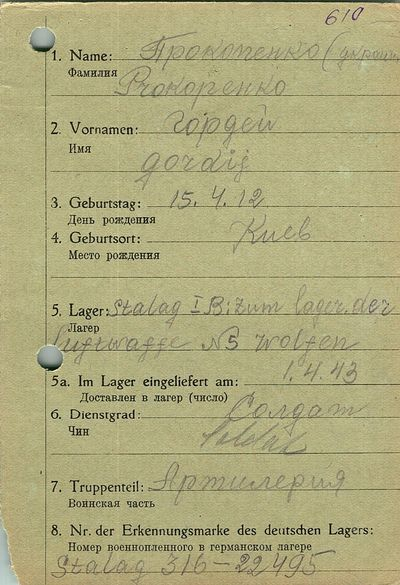 610
1. Name: Прокопенко (украин
Фамилия
Prokopenko
2. Vornamen: Гордей
Имя
Gordij
3. Geburtstag: 15.4.12
День рождения
4. Geburtsort: Киев
Место рождения
5. Lager: Stalag IB; zum lager der
Лагер
luftwaffe №5 Wolfen
5a. Im Lager eingeliefert am: 1.4.43
Доставлен в лагер (число)
6. Dienstgrad: Солдат
Чин Soldat
7. Truppenteil: Артилерия
Воинская часть
8. Nr. der Erkennungsmarke des deutschen Lagers:
Номер военнопленного в германском лагере
Stalag 316-22495